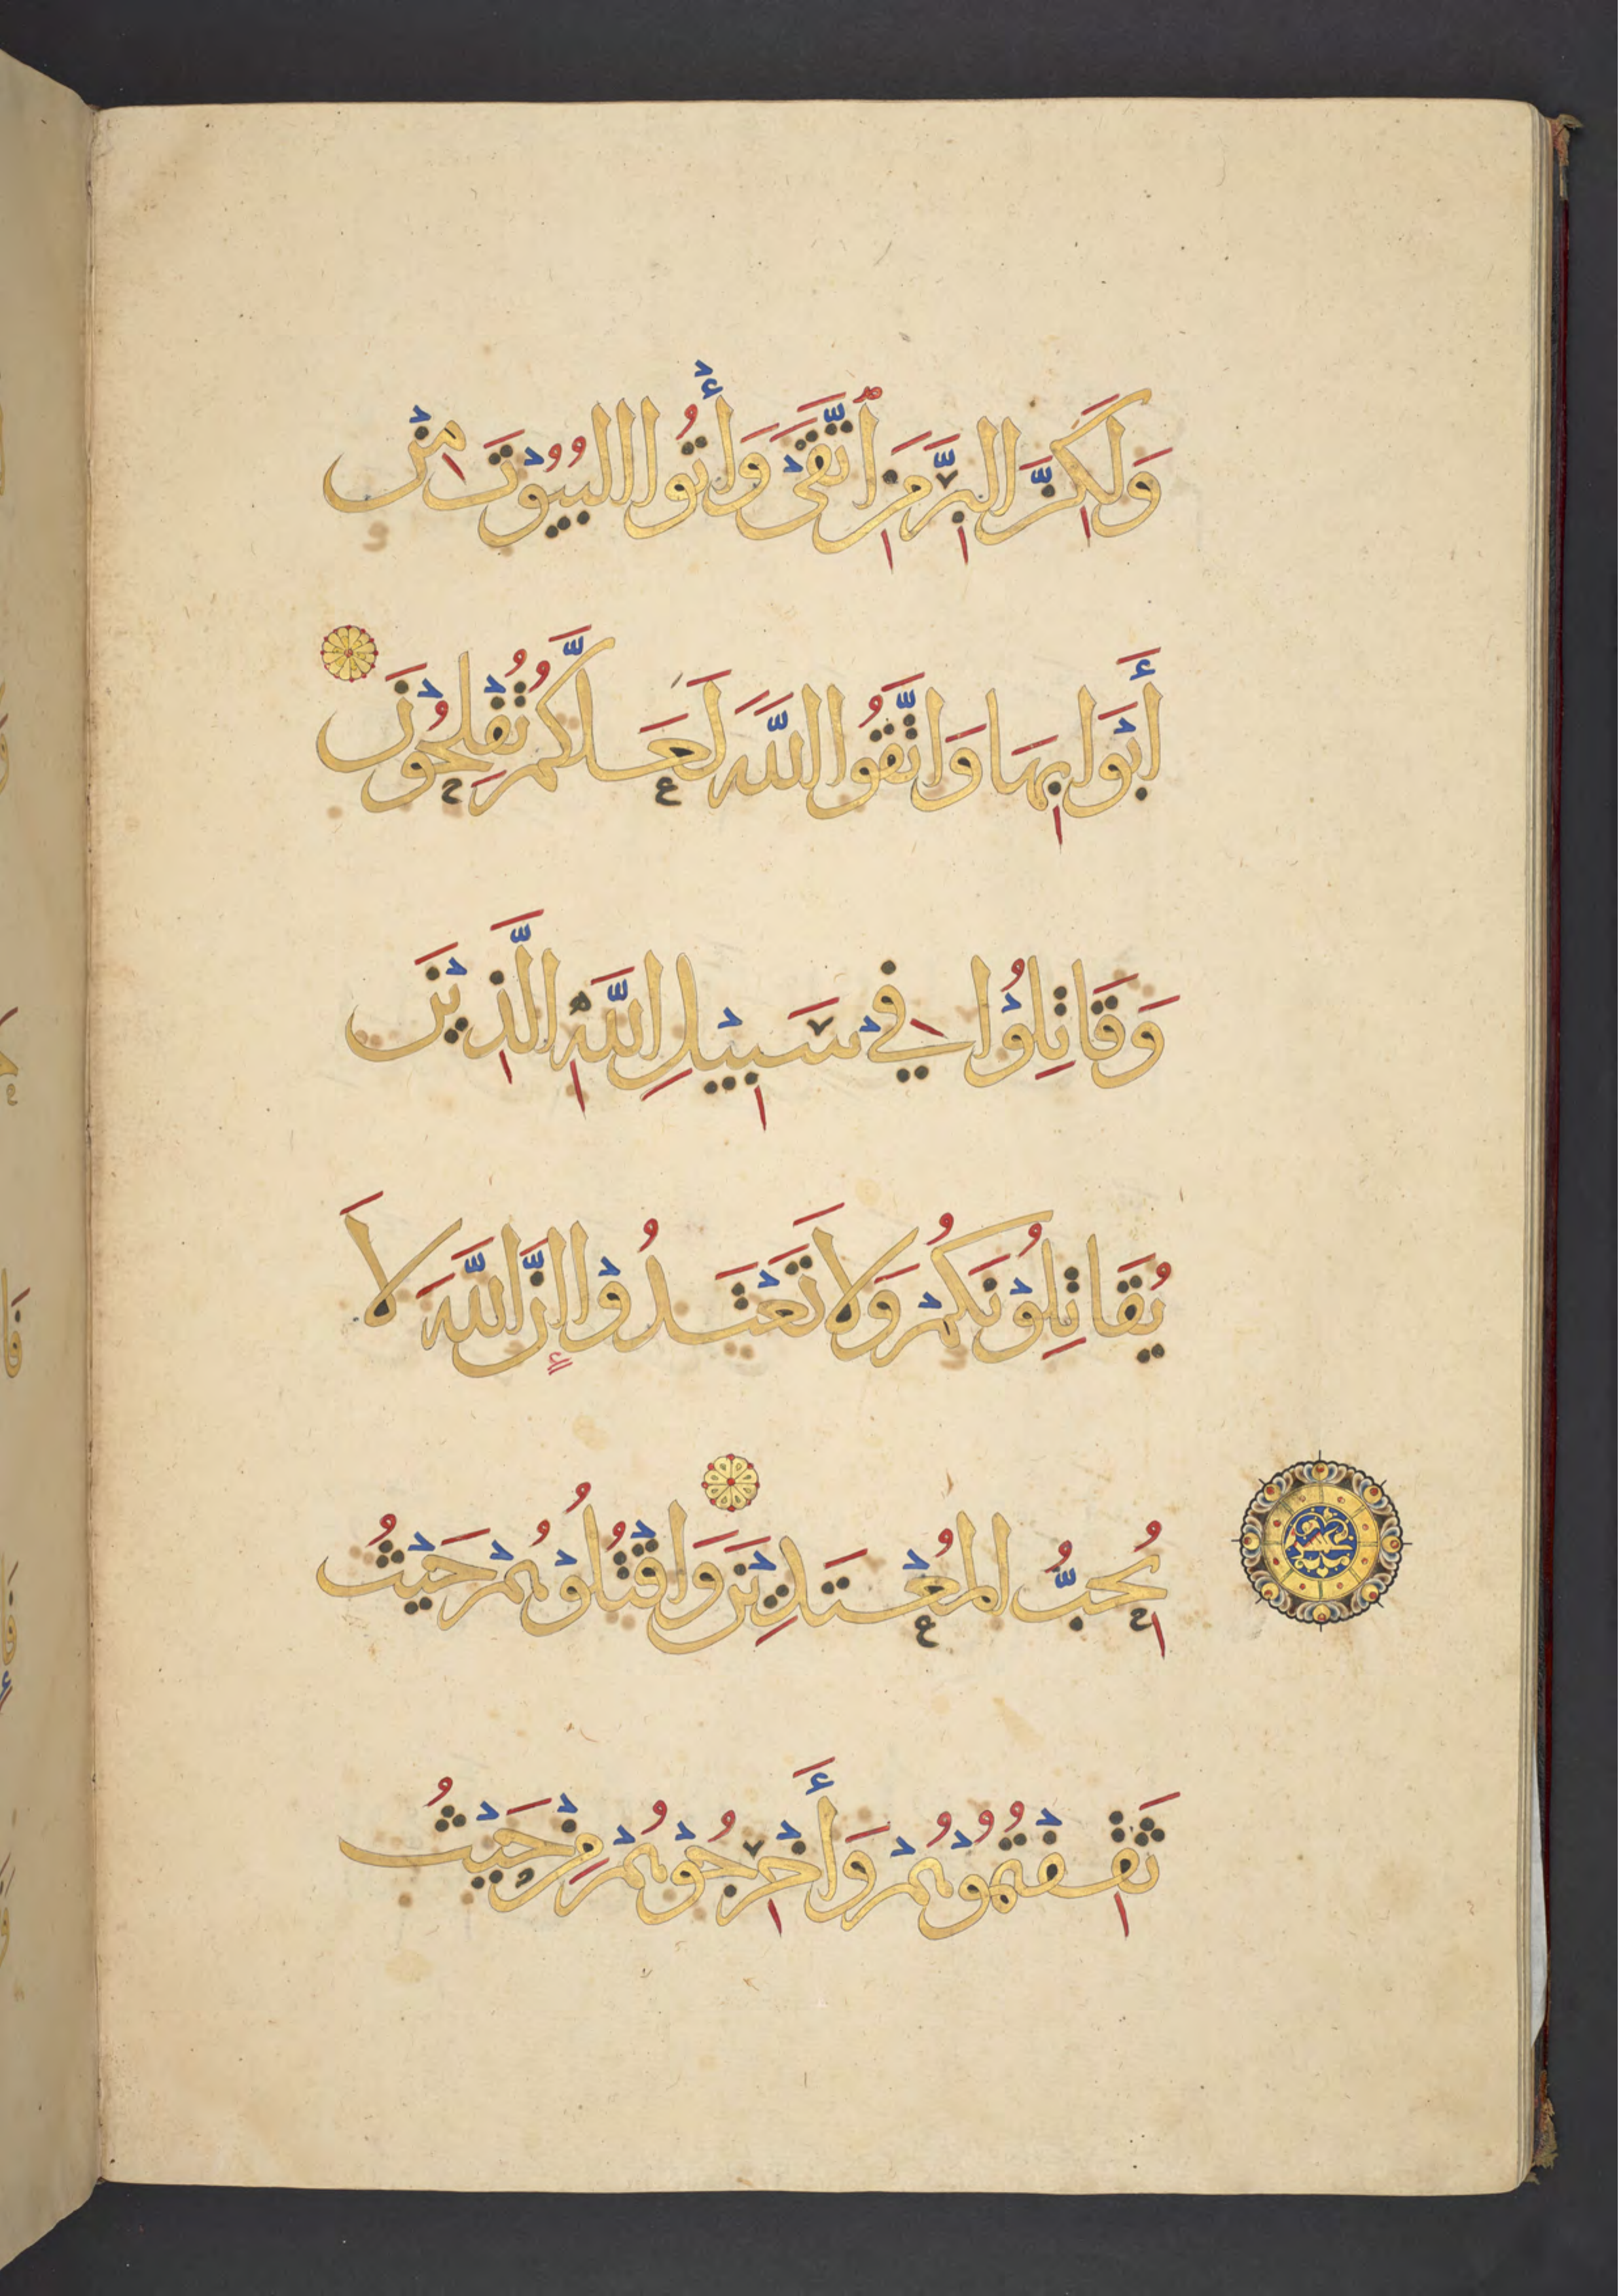 وَلَكِنَّ الْبِرَّ مَنِ ٱتَّقَىٰ وَأْتُوا الْبُيُوْتَ مِنْ
أَبْوَابِهَا وَاتَّقُوا اللَّهَ لَعَلَّكُمْ تُفْلِحُوْنَ
وَقَاتِلُوْا فِيْ سَبِيْلِ اللَّهِ الَّذِيْنَ
يُقَاتِلُوْنَكُمْ وَلَا تَعْتَدُوْا إِنَّ اللَّهَ لَا
يُحِبُّ الْمُعْتَدِيْنَ وَاقْتُلُوْهُمْ حَيْثُ
ثَقِفْتُمُوْهُمْ وَأَخْرِجُوْهُمْ مِنْ حَيْثُ